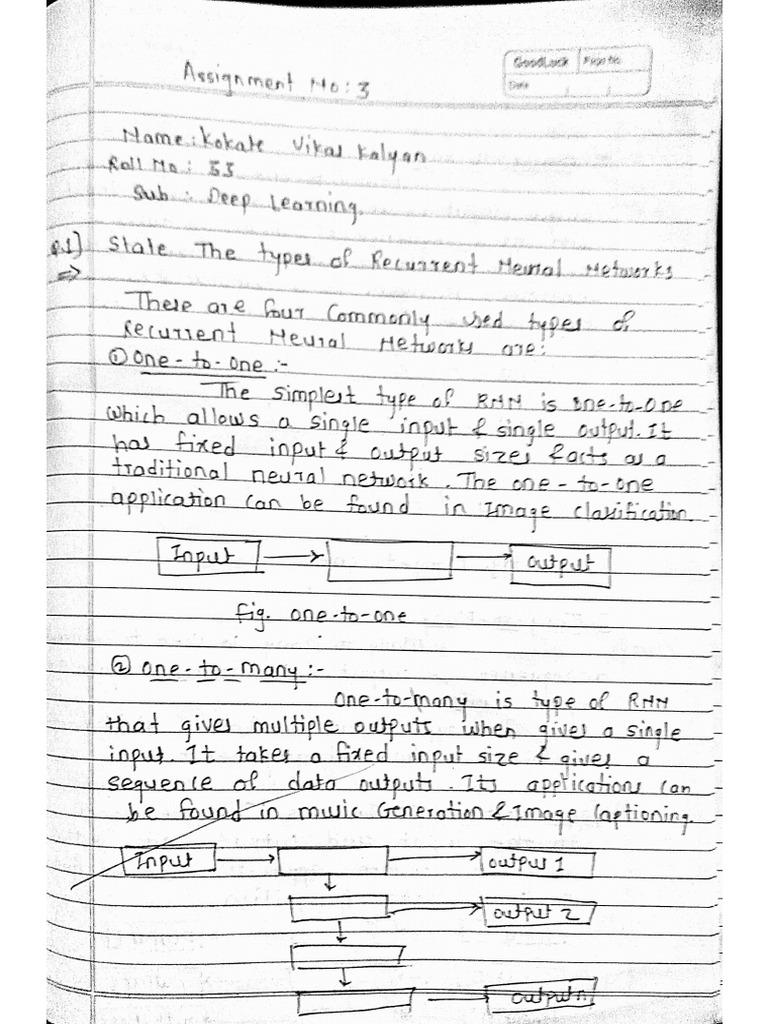 Assignment No: 3
GoodLuck Page No
Date
Name: Kokate Vikas Kalyan
Roll No: 53
Sub: Deep Learning.
Q.1] State The types of Recurrent Neural Networks
⇒
These are four Commonly used types of
Recurrent Neural Networks are:
① One-to-one :-
The simplest type of RNN is one-to-one
which allows a single input & single output. It
has fixed input & output sizes & acts as a
traditional neural network. The one-to-one
application can be found in Image clasification.
Input
output
fig. one-to-one
② one-to-many:-
One-to-many is type of RNN
that gives multiple outputs when gives a single
input. It takes a fixed input size & gives a
sequence of data outputs. Its applications can
be found in music Generation & Image Captioning.
Input
output 1
output 2
output n